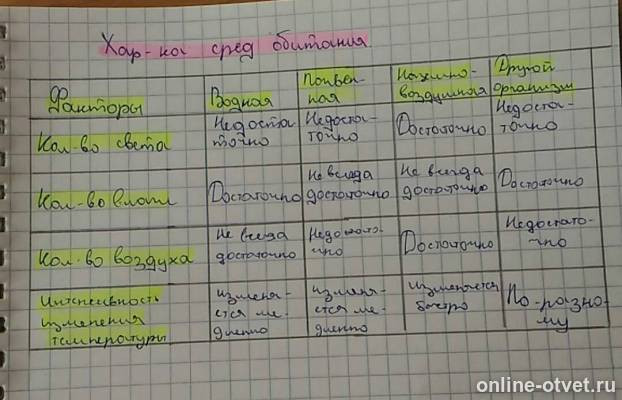 Хар-ка сред обитания
Факторы Водная Почвен-ная Наземно-воздушная Другой организм
Кол-во света Недоста точно Недоста-точно Достаточно Недоста-точно
Кол-во влаги Достаточно Не всегда достаточно Не всегда достаточно Достаточно
Кол-во воздуха Не всегда достаточно Недостато-чно Достаточно Недостато-чно
Интенсивность изменения температуры изменя-ется ме-дленно изменя-ется ме-дленно изменяется быстро По-разно-му
online-otvet.ru